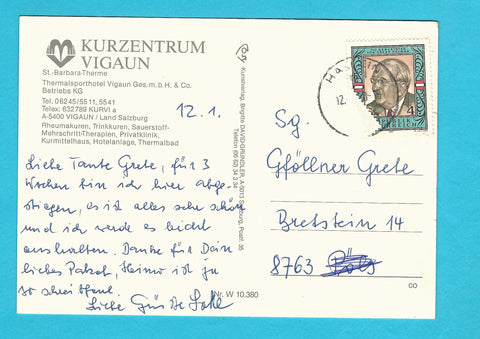 KURZENTRUM
VIGAUN
St.-Barbara-Therme
Thermalsporthotel Vigaun Ges.m.b.H. & Co.
Betriebs KG
Tel. 06245/5511, 5541
Telex 632789 KURVI a
A-5400 VIGAUN / Land Salzburg
Rheumakuren, Trinkkuren, Sauerstoff-
Mehrschritt-Therapien, Privatklinik,
Kurmittelhaus, Hotelanlage, Thermalbad
12.1.
Liebe Tante Grete, für 3
Wochen bin ich hier abge-
stiegen, es ist alles sehr schön
und ich werde es leicht
aushalten. Danke für Dein
liebes Packerl. Heimo ist ja
so
Liebe Grüße
Kunstverlag, Brigitte DAVID-GRÜNDLER, A-5013 Salzburg, Postf. 35
Telefon (06 62) 34 3 34
Nr. W 10.380
12.
4
Sg.
Gföllner Grete
Bretstein 14
8763 Pöls
CO